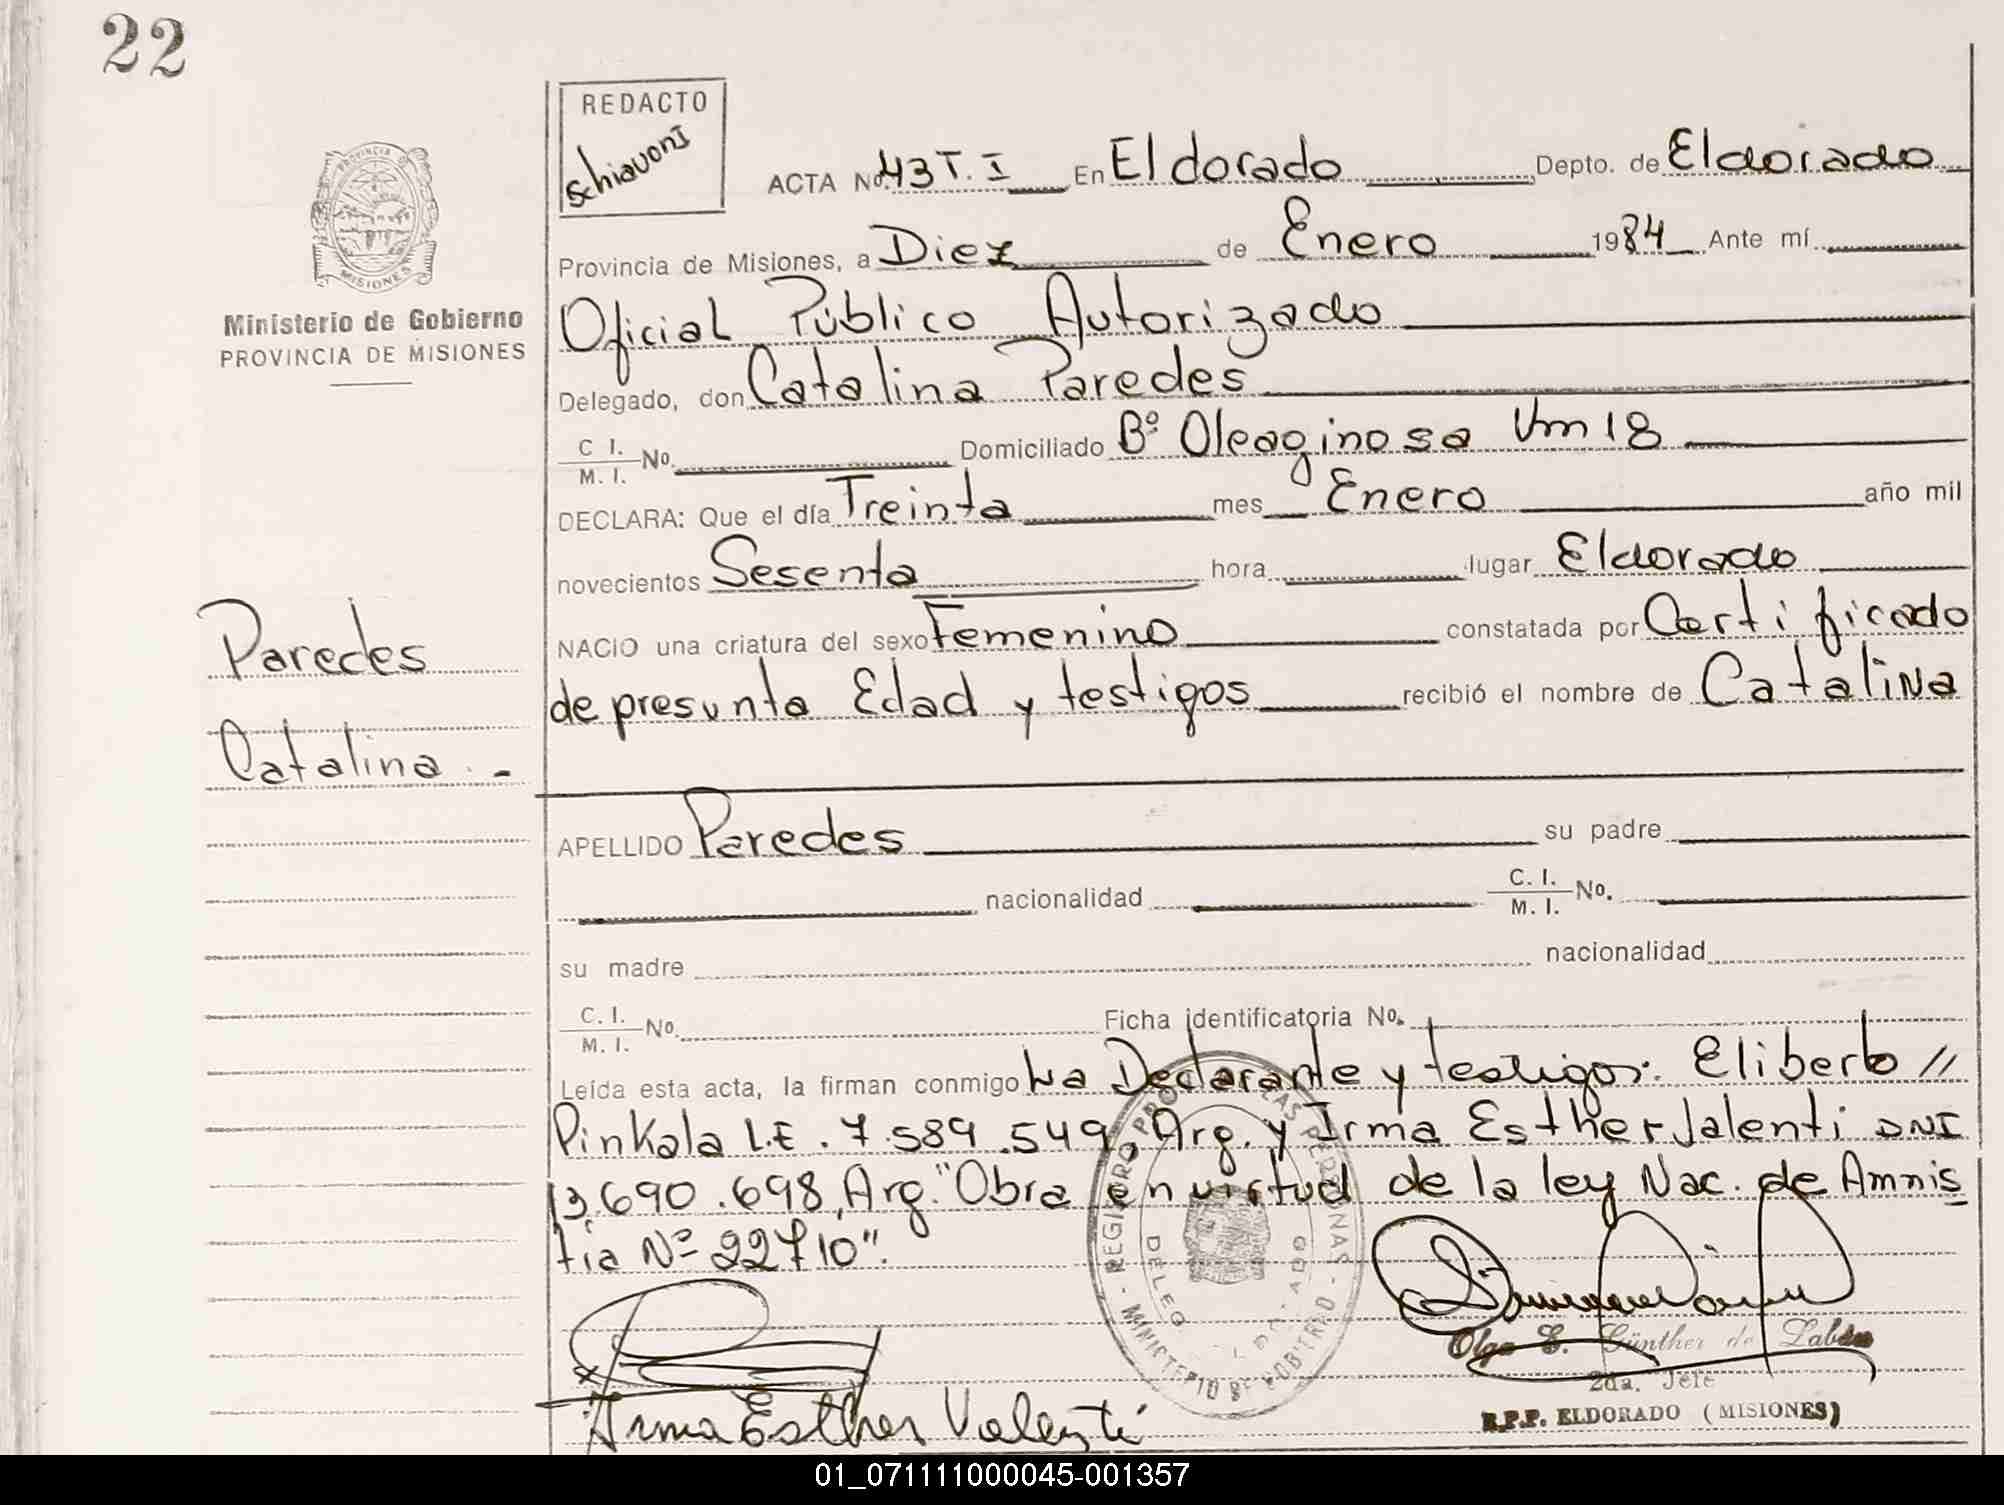 22
REDACTO
Schiavoni
ACTA No. 43 T. I En Eldorado Depto. de Eldorado
Provincia de Misiones, a Diez de Enero 1984 Ante mí
Oficial Público Autorizado
Delegado, don Catalina Paredes
C. I. / M. I. No. Domiciliado Bº Oleaginosa Km 18
DECLARA: Que el día Treinta mes Enero año mil
novecientos Sesenta hora lugar Eldorado
NACIO una criatura del sexo Femenino constatada por Certificado
de presunta Edad y testigos recibió el nombre de Catalina
APELLIDO Paredes su padre
nacionalidad C. I. / M. I. No.
su madre nacionalidad
C. I. / M. I. No. Ficha identificatoria No.
Leída esta acta, la firman conmigo La Declarante y testigos: Eliberto //
Pinkala L.E. 7.589.549, Arg. y Irma Esther Valenti DNI
13.690.698, Arg. "Obra en virtud de la ley Nac. de Amnis
tia Nº 22710".
Irma Esther Valenti
Olga E. Günther de
2da. Jefe
R.P.P. ELDORADO (MISIONES)
REGISTRO PROV. DE LAS PERSONAS
DELEGADO
MINISTERIO DE GOBIERNO
PROVINCIA DE
MISIONES
Ministerio de Gobierno
PROVINCIA DE MISIONES
Paredes
Catalina.-
01_071111000045-001357